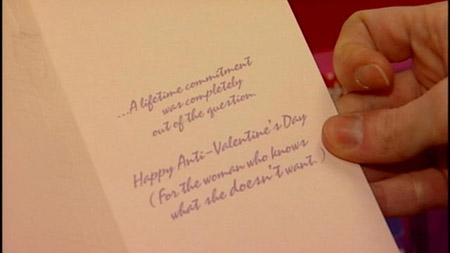 ...A lifetime commitment
was completely
out of the question.
Happy Anti-Valentine's Day
(For the woman who knows
what she doesn't want.)